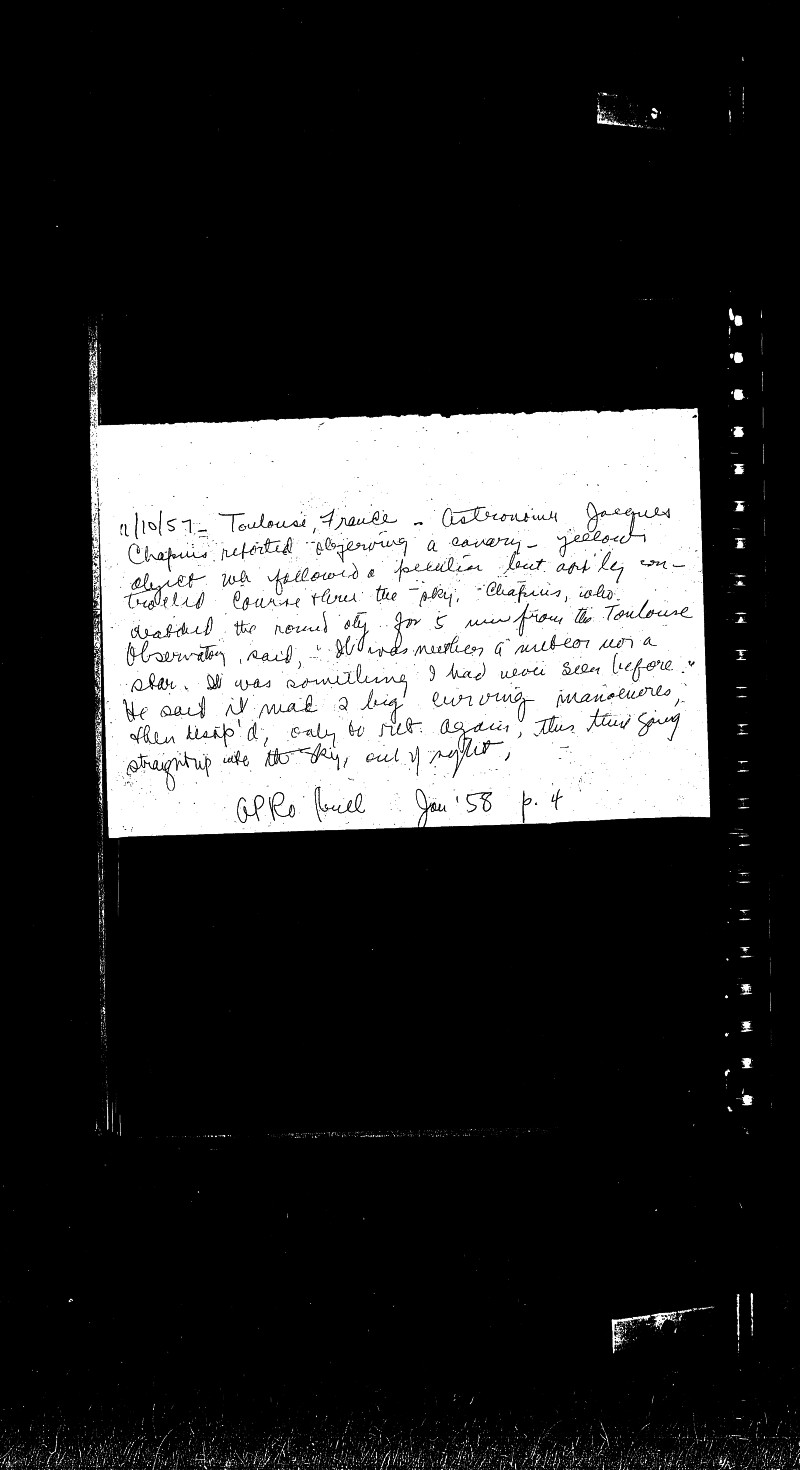 11/10/57 - Toulouse, France - Astronomer Jacques
Chapuis reported observing a canary-yellow
object wh followed a peculiar but aptly con-
trolled course thru the sky. Chapuis, who
watched the round obj for 5 min from the Toulouse
Observatory, said, "It was neither a meteor nor a
star. It was something I had never seen before."
He said it made 2 big curving manoeuvres,
then disap'd, only to ret. again, this time going
straight up into the sky, out of sight.
APRO bull Jan '58 p. 4